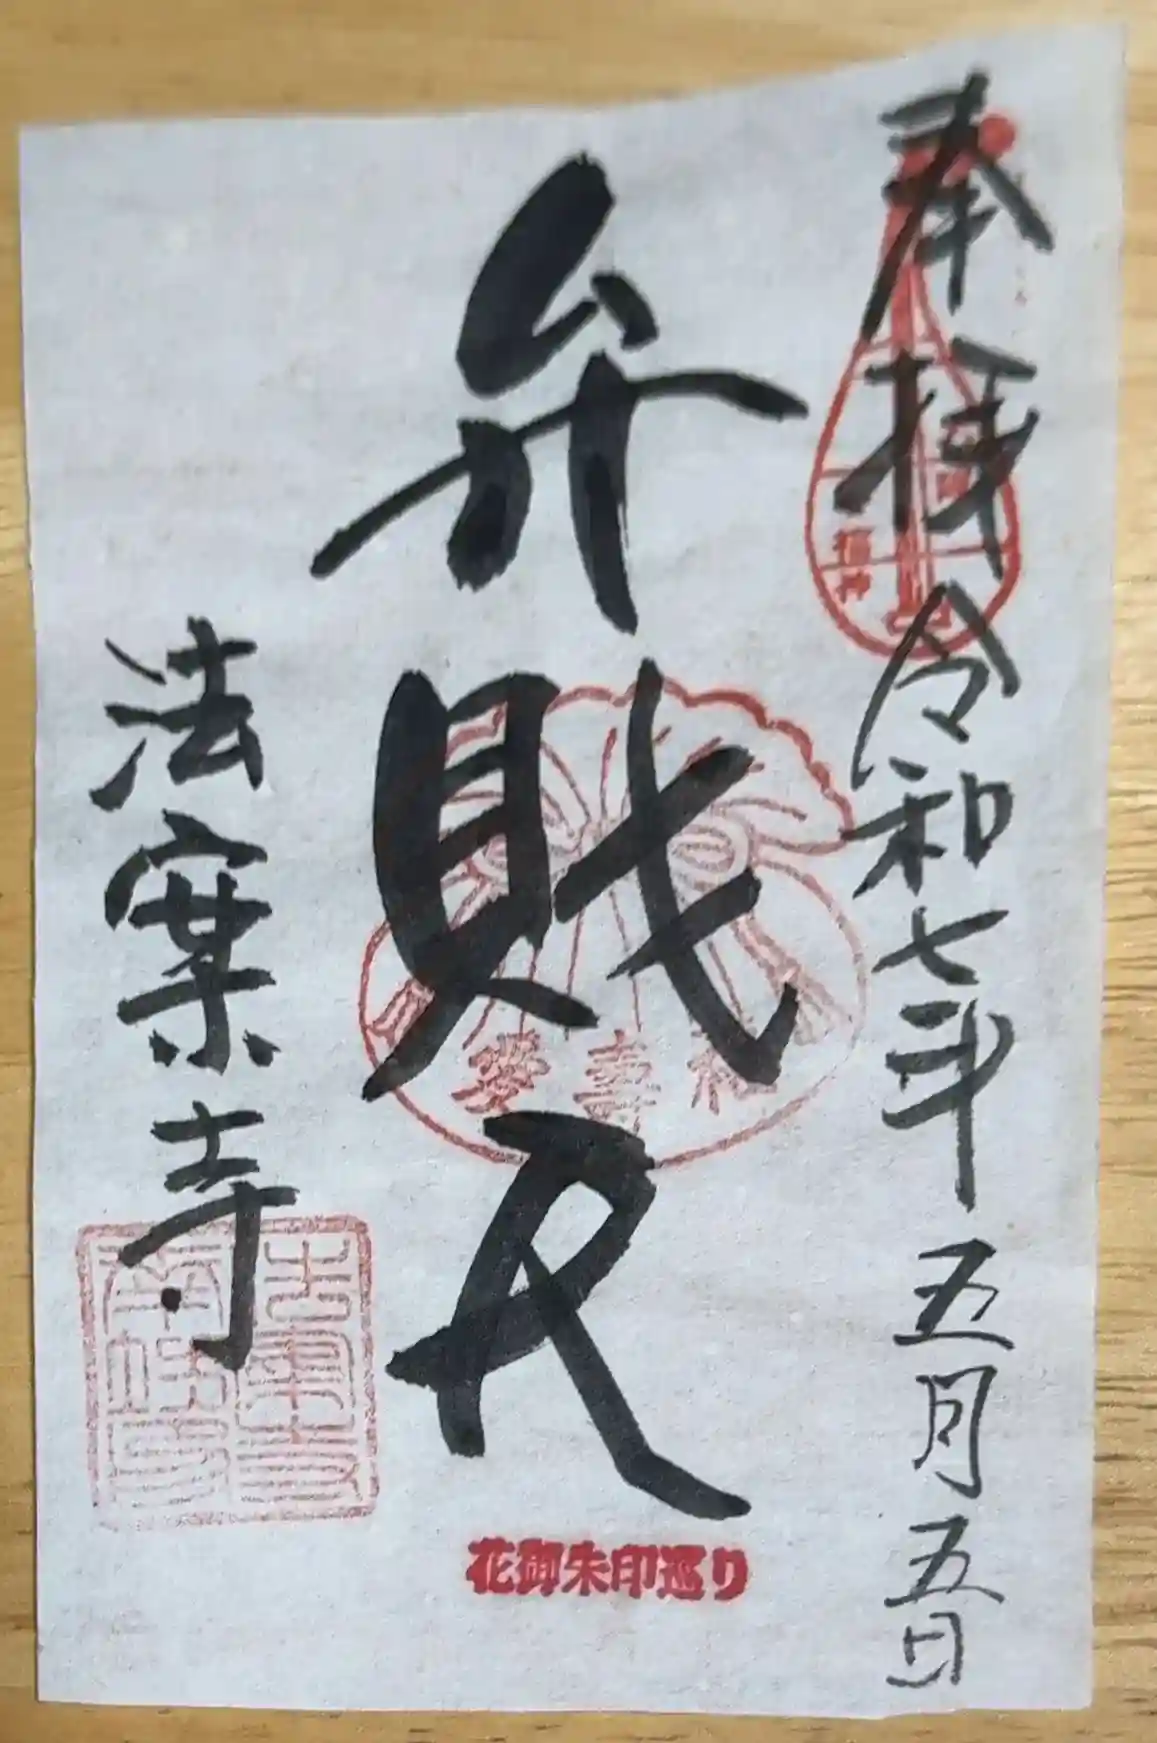 奉拝 令和七年五月五日
弁財天
法案寺
花御朱印巡り